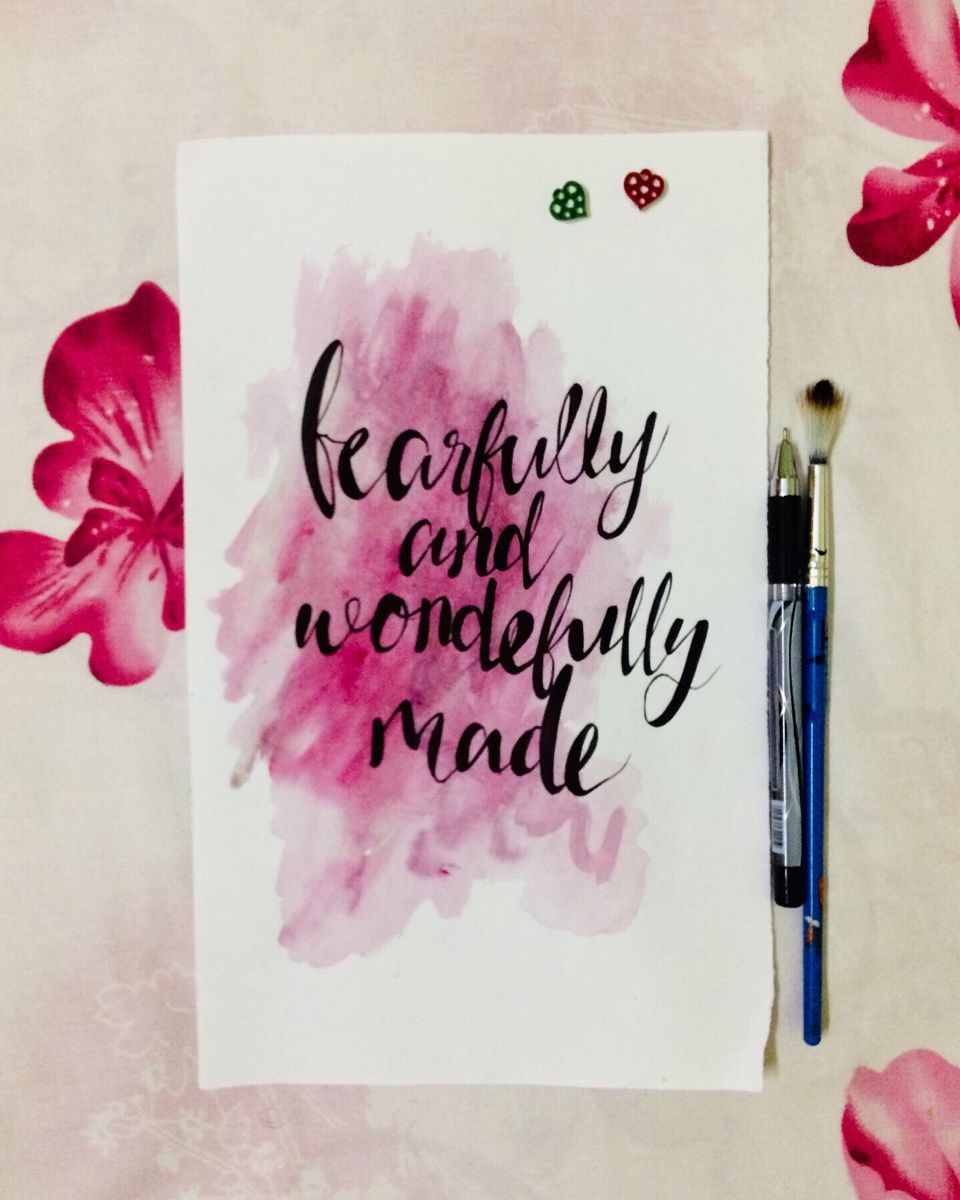 fearfully
and
wondefully
made